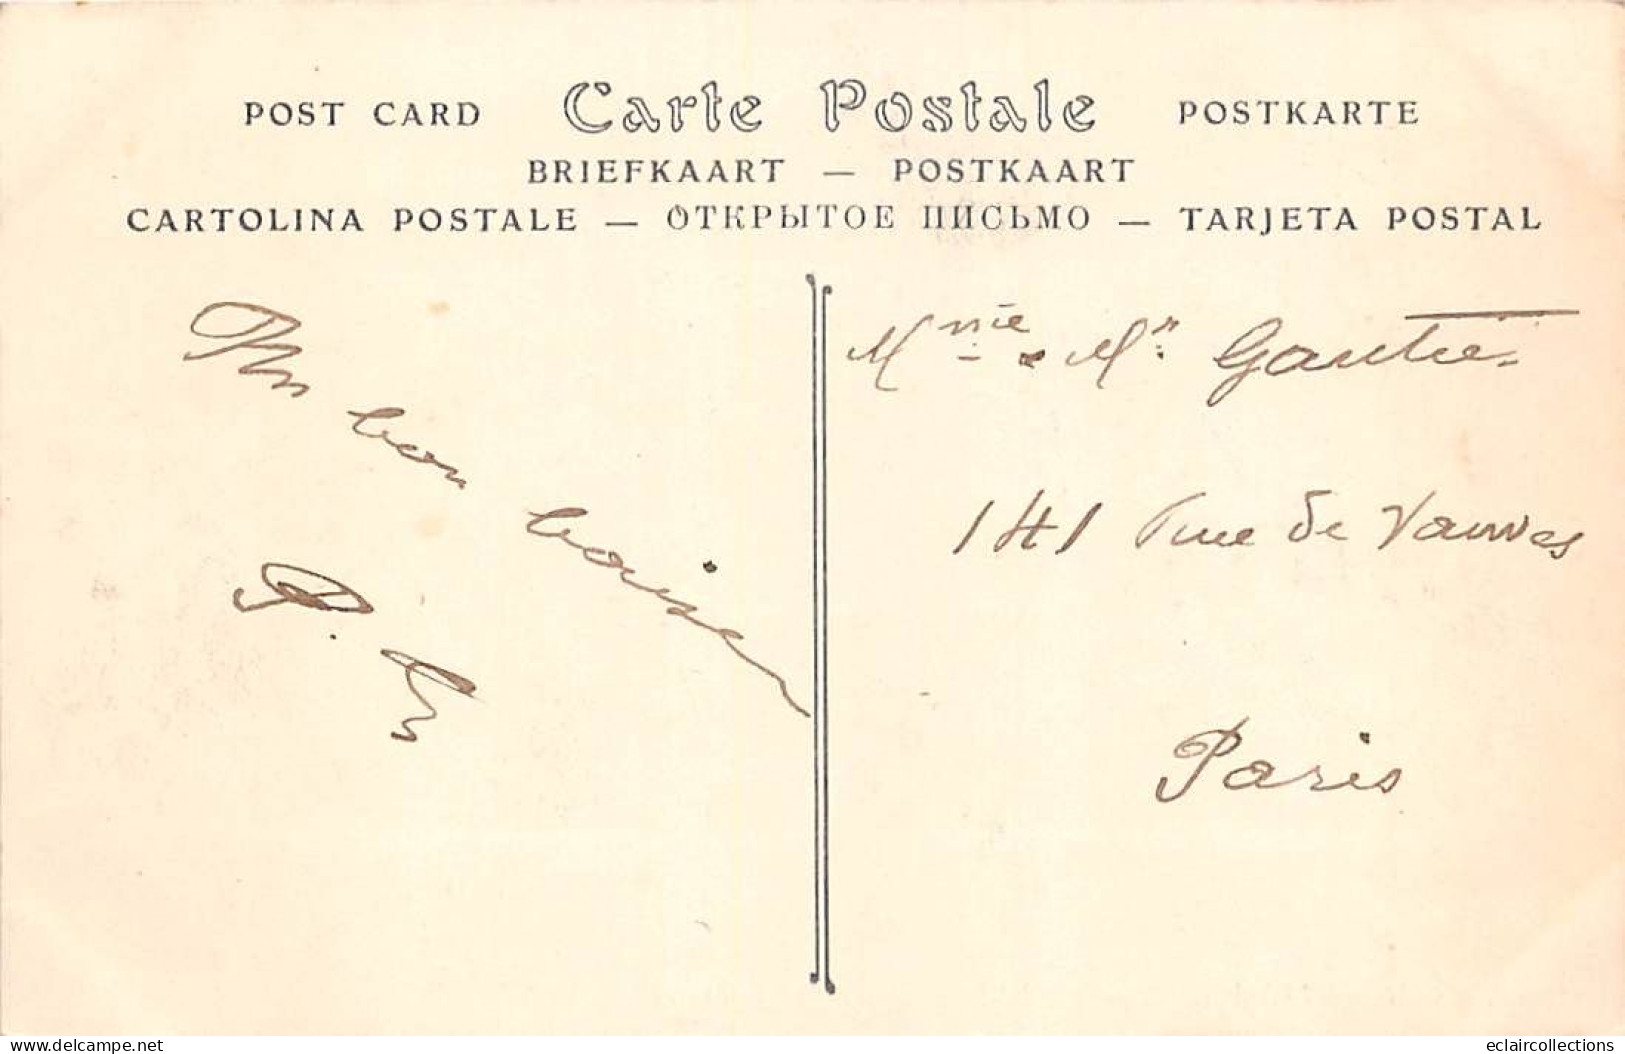 POST CARD Carte Postale POSTKARTE
BRIEFKAART — POSTKAART
CARTOLINA POSTALE — ОТКРЫТОЕ ПИСЬМО — TARJETA POSTAL
Un bon baiser
Mme & Mr Gautier
141 rue de Vanves
Paris
www.delcampe.net
eclaircollections